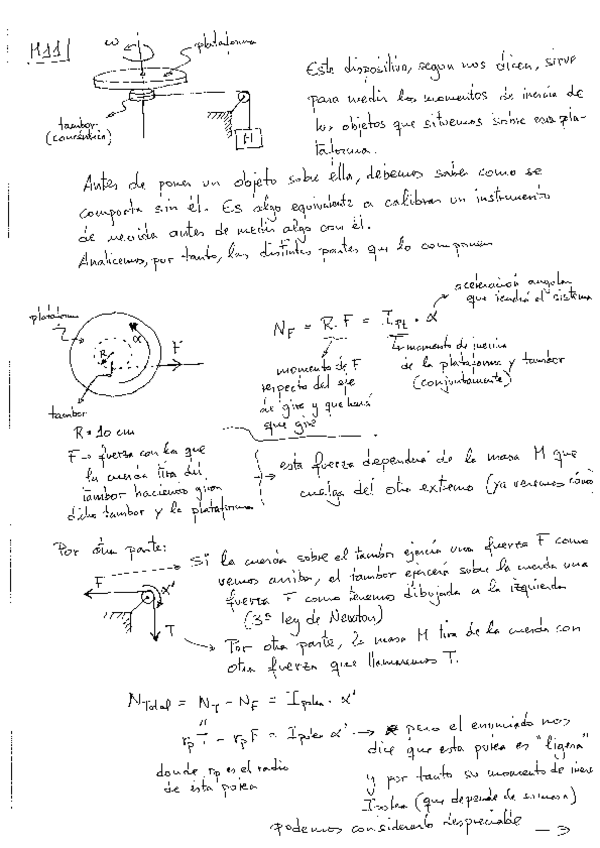 M11
ω
plataforma
tambor
(concéntrico)
M
Este dispositivo, según nos dicen, sirve
para medir los momentos de inercia de
los objetos que situemos sobre esa pla-
taforma.
Antes de poner un objeto sobre ella, debemos saber como se
comporta sin él. Es algo equivalente a calibrar un instrumento
de medida antes de medir algo con él.
Analicemos, por tanto, las distintas partes que lo componen
plataforma
R
α
F
tambor
R = 10 cm
N_F = R · F = I_Pt · α
aceleración angular
que tendrá el sistema
momento de F
respecto del eje
de giro y que hará
que gire
momento de inercia
de la plataforma y tambor
(conjuntamente)
F → fuerza con la que
la cuerda tira del
tambor haciendo girar
dicho tambor y la plataforma
esta fuerza dependerá de la masa M que
cuelga del otro extremo (ya veremos cómo)
Por otra parte:
Si la cuerda sobre el tambor ejercía una fuerza F como
vemos arriba, el tambor ejercerá sobre la cuerda una
fuerza F como tenemos dibujada a la izquierda
(3ª ley de Newton)
F
α'
T
Por otra parte, la masa M tira de la cuerda con
otra fuerza que llamaremos T.
N_Total = N_T - N_F = I_polea · α'
r_p T - r_p F = I_polea α' → pero el enunciado nos
dice que esta polea es "ligera"
donde r_p es el radio
de esta polea
y por tanto su momento de iner
I_polea (que depende de su masa)
podemos considerarlo despreciable